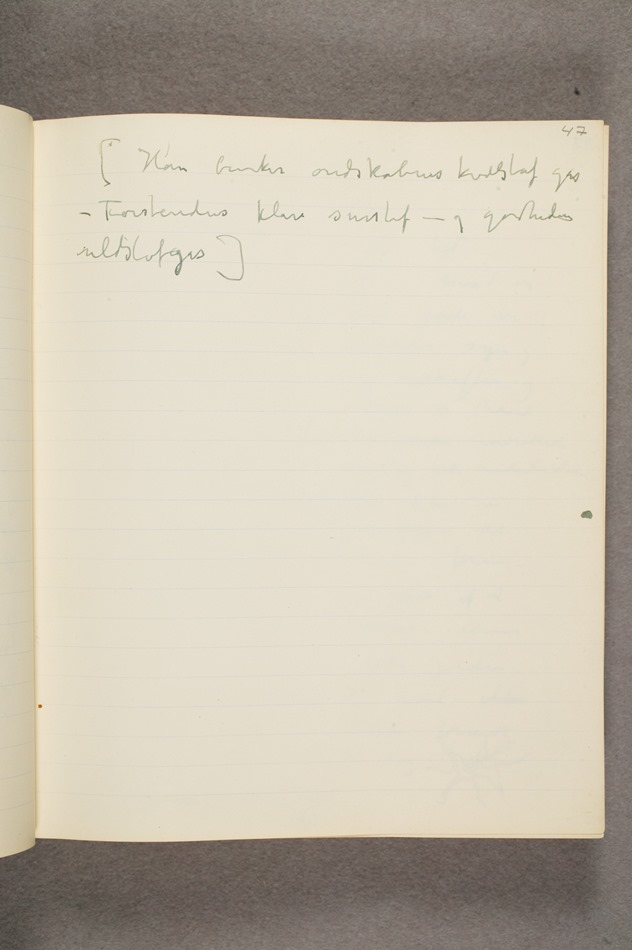 47
[ Han bruker ondskabens kvelstof gas
– Forstandens klare surstof — og godhedens
]